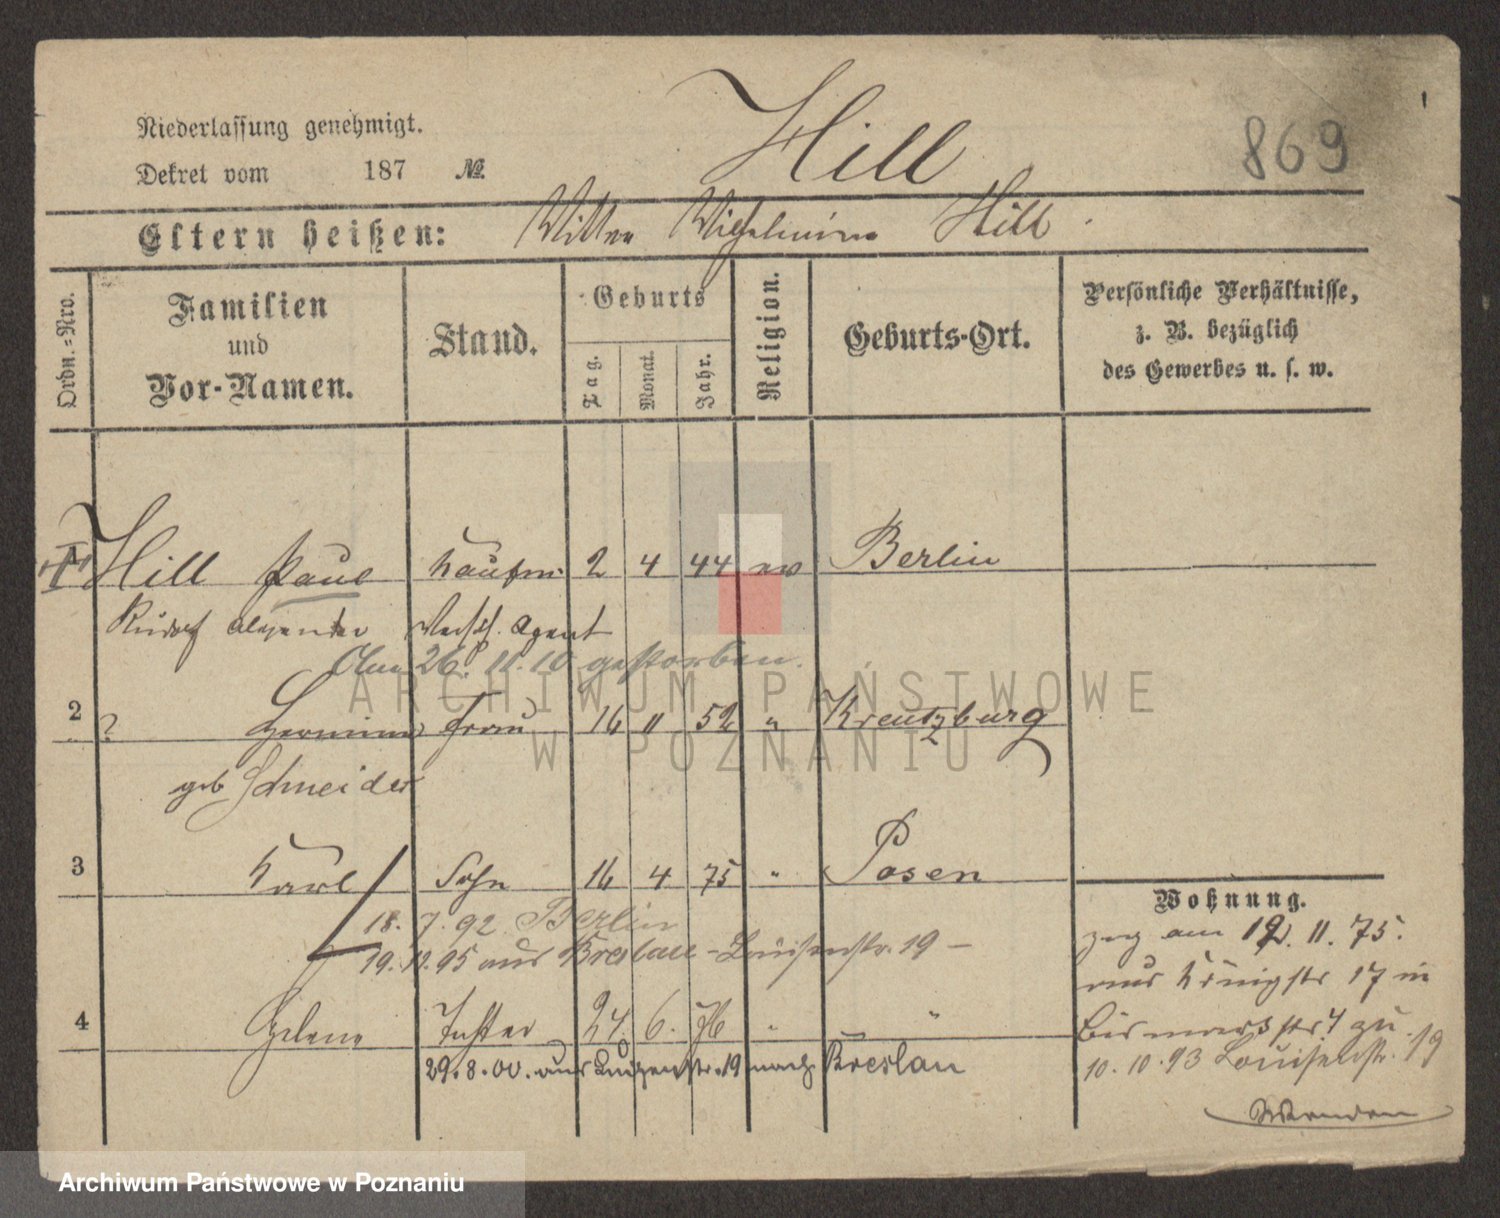 Hill
869
Niederlassung genehmigt.
Dekret vom 187 №
Eltern heißen: Wittwe Wilhelmine Hill
Ordn.-Nro.
Familien
und
Vor-Namen.
Stand.
Geburts
Tag.
Monat.
Jahr.
Religion.
Geburts-Ort.
Persönliche Verhältnisse,
z. B. bezüglich
des Gewerbes u. s. w.
1 Hill Paul Kaufm. 2 4 44 ev Berlin
Rudolf Alexander Agent
Am 26. 11. 10 gestorben.
2 ? Hermine Frau 16 11 52 " Kreutzburg
geb Schneider
3 Karl Sohn 16 4 75 " Posen
18. 7. 92 Berlin
19. 12. 95 aus Breslau - Louisenstr. 19 -
4 Helene Tochter 24. 6. 76 " "
29. 8. 00. aus Luisenstr. 19 nach Breslau
Wohnung.
zog am 12. 11. 75.
aus Königstr 17 in
Bismarckstr 4 zu
10. 10. 93 Louisenstr. 19
Wenden
ARCHIWUM PAŃSTWOWE
W POZNANIU
Archiwum Państwowe w Poznaniu